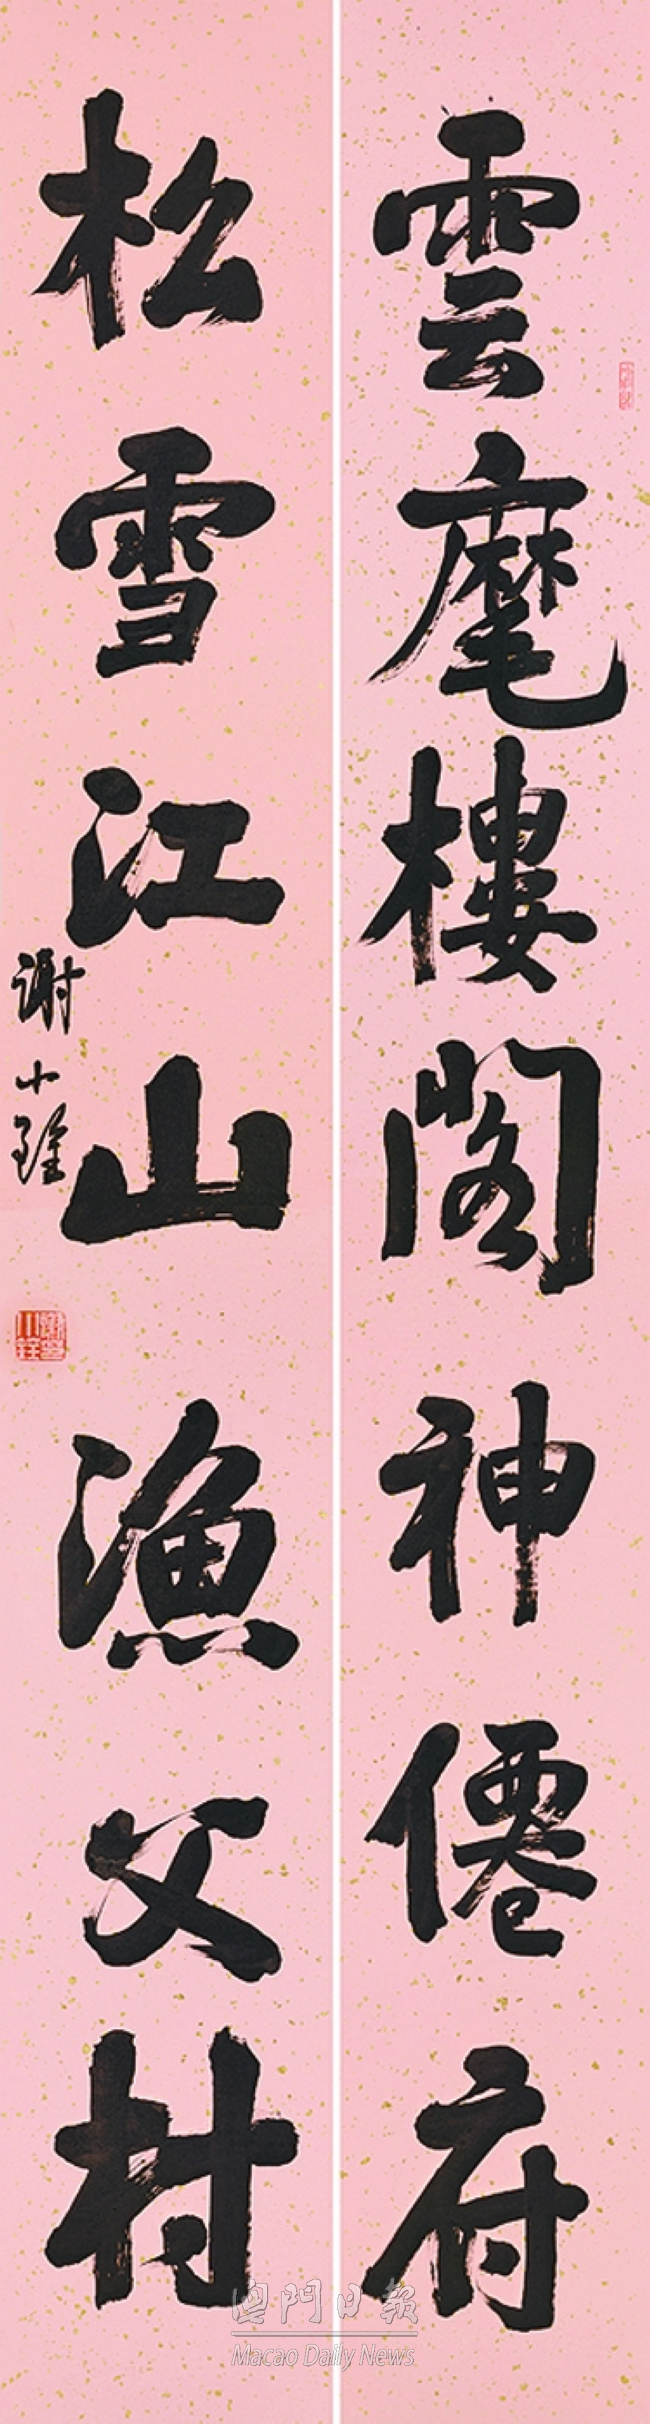 雲麾樓閣神僊府
松雪江山漁父村
謝小銓
澳門日報
Macao Daily News